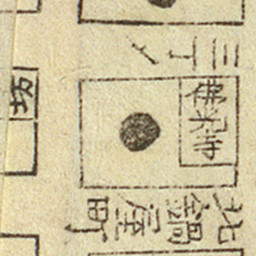 三丁メ
坊
佛光寺
北鍋屋町